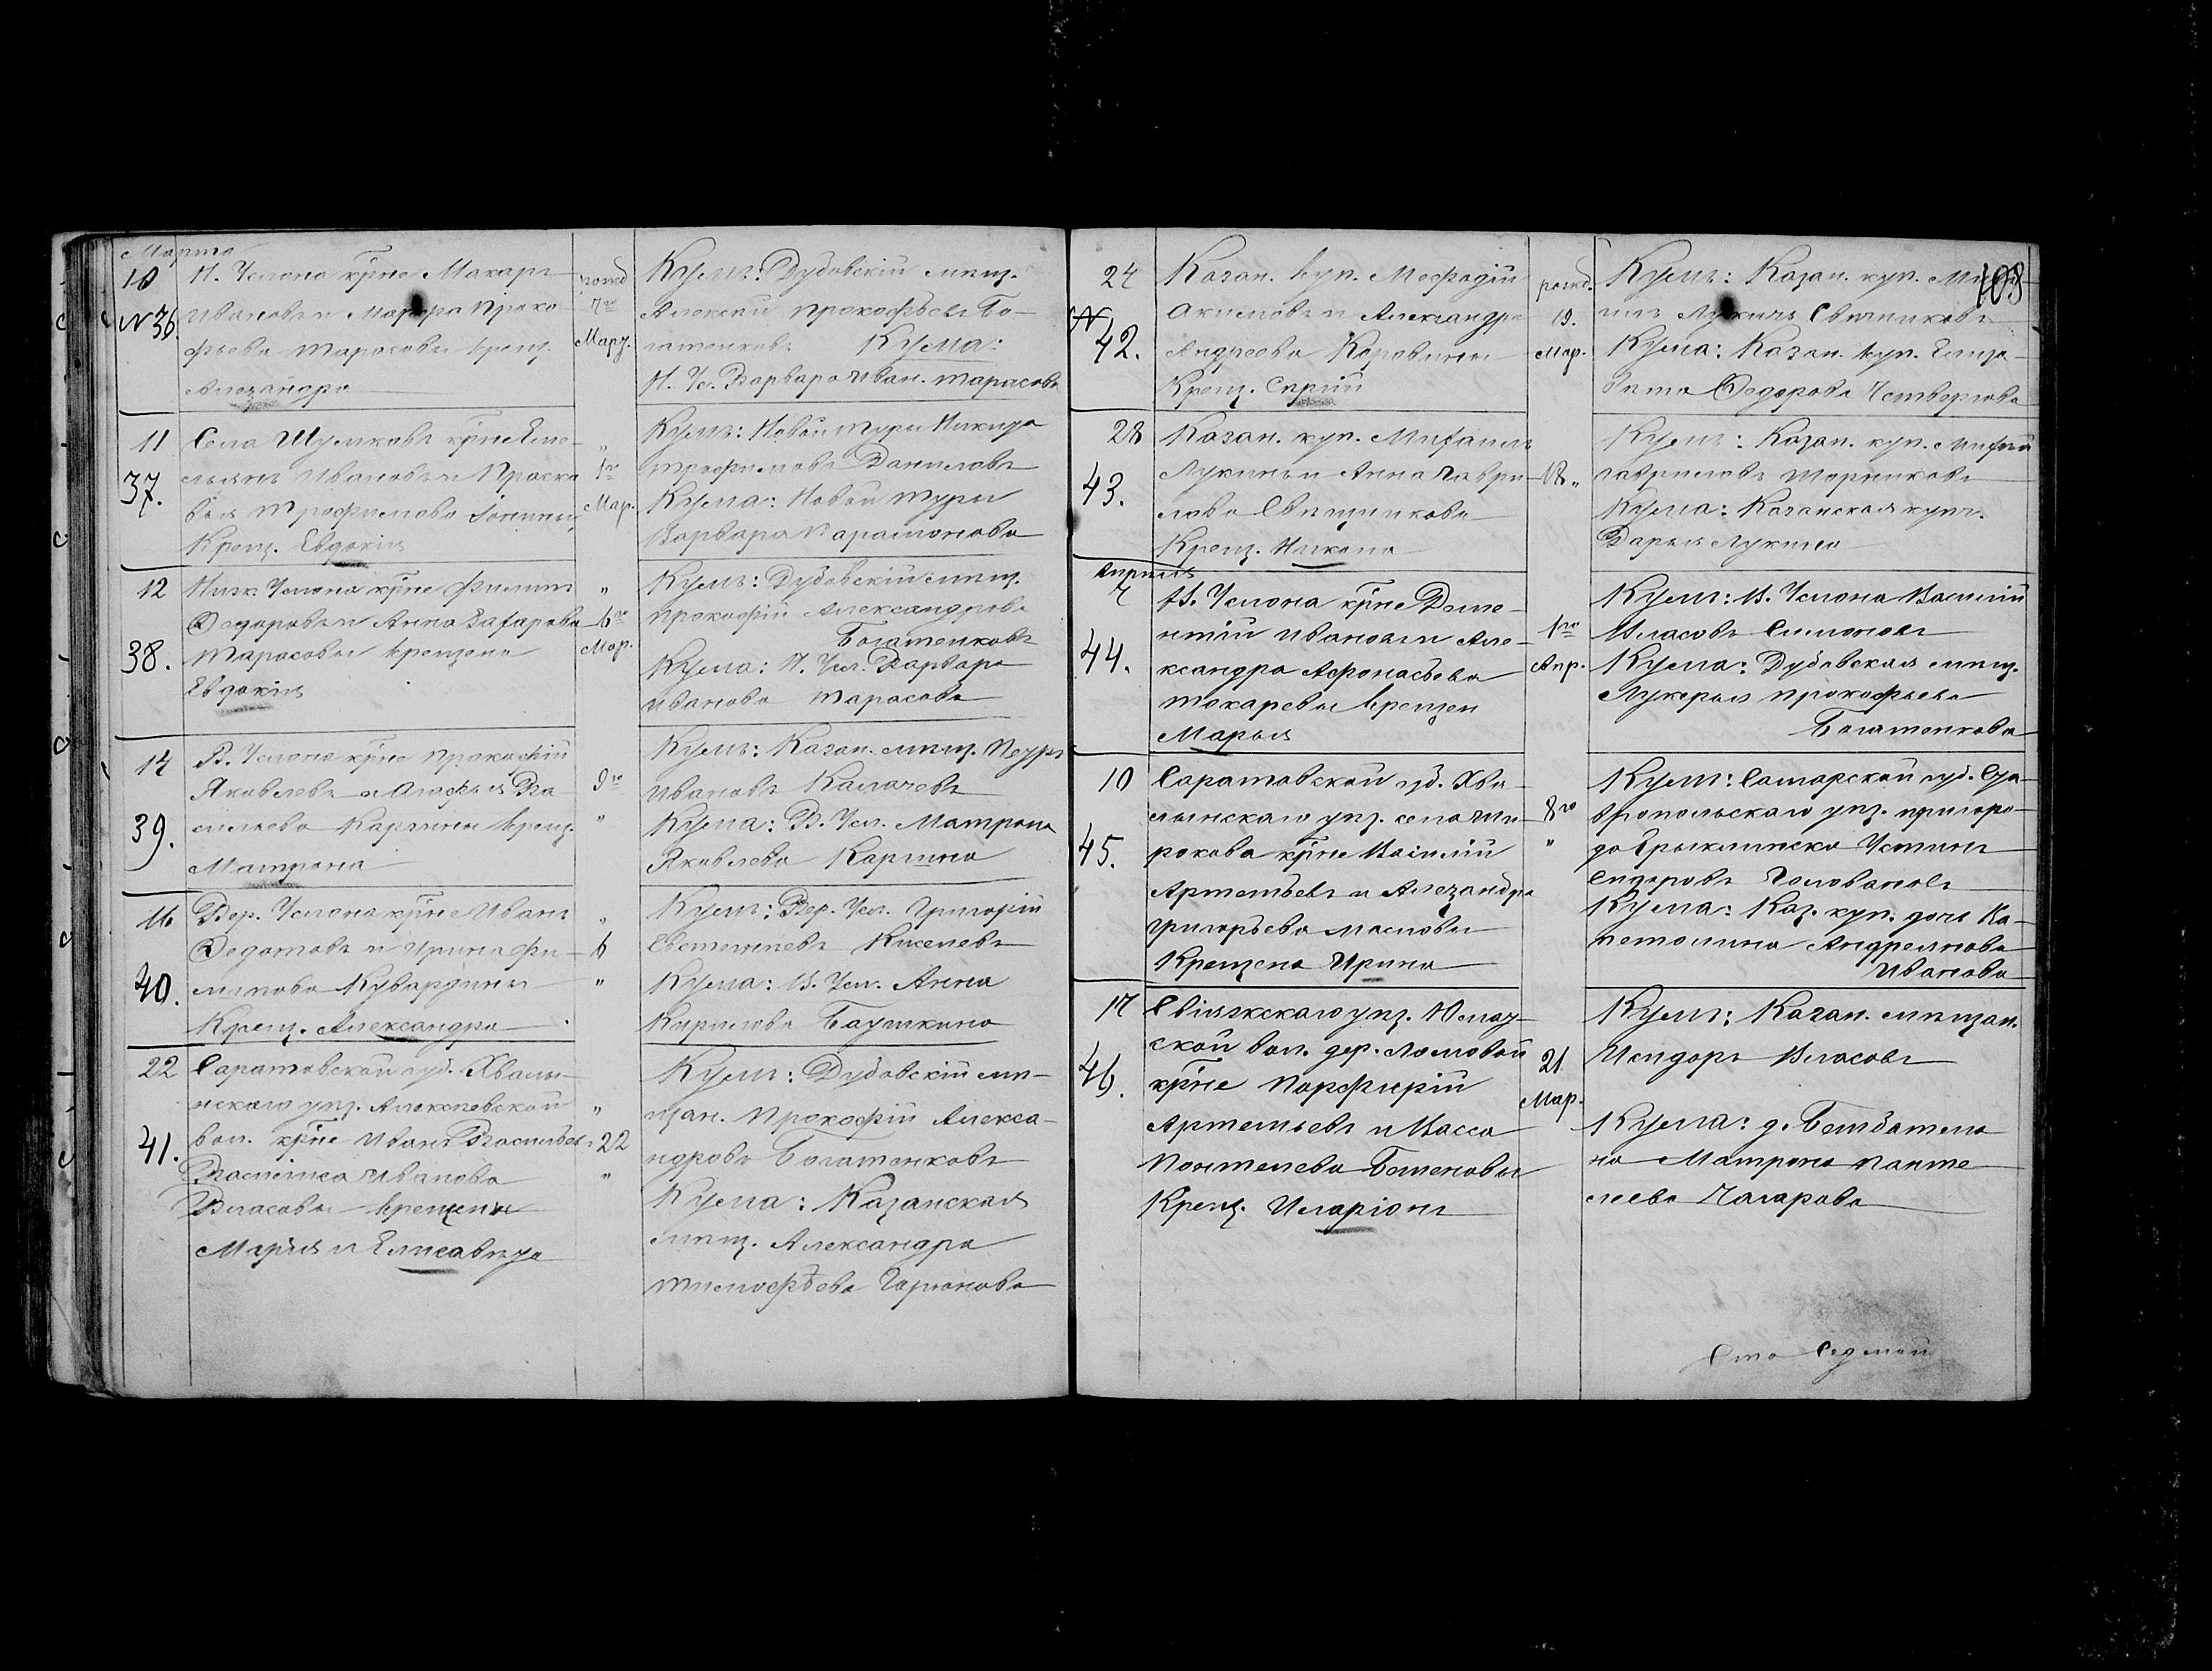 Марта
10
№ 36.
Н. Услона крне Макаръ
Ивановъ и Марфа Проко-
фьева Тарасовы крещ.
Александра
рожд.
7го
Мар.
Кумъ: Дубовскій мѣщ.
Алексѣй Прокофьевъ Бо-
гатенковъ Кума:
Н. Ус. Варвара Иван. Тарасова
11
37.
Села Шумкова крне Еме-
льянъ Ивановъ и Праско-
вья Трофимова
Крещ. Евдокія
"
1го
Мар.
Кумъ: Новой Туры Никита
Трофимовъ Даниловъ
Кума: Новой Туры
Варвара Парамонова
12
38.
Ниж. Услона крне Филиппъ
Федоровъ и Анна Захарова
Тарасовы крещена
Евдокія
"
6го
Мар.
Кумъ: Дубовскій мѣщ.
Прокофій Александровъ
Богатенковъ
Кума: Н. Усл. Варвара
Иванова Тарасова
14
39.
В. Услона крне Прокофій
Яковлевъ и Агафья Ва-
сильева Каргины крещ.
Матрона
9го
"
Кумъ: Казан. мѣщ. Петръ
Ивановъ Калачевъ
Кума: В. Усл. Матрона
Яковлева Каргина
16
40.
Вер. Услона крне Иванъ
Федотовъ и Ирина Фи-
липова Кувардины
Крещ. Александра
"
6
"
Кумъ: Вер. Усл. Григорій
Евстигнѣевъ Киселевъ
Кума: В. Усл. Анна
Кирилова Баушкина
22
41.
Саратовской губ. Хвалы-
нскаго уѣз. Алексѣевской
вол. крне Иванъ Васильевъ
Василиса Иванова
Власовы крещены
Марія и Елисавета
"
22
"
Кумъ: Дубовскій мѣ-
щан. Прокофій Алекса-
ндровъ Богатенковъ
Кума: Казанская
мѣщ. Александра
Тимофѣева Горюнова
108
24
№
42.
Казан. куп. Мефодій
Акимовъ и Александра
Андреева Коровины
Крещ. Сергій
рожд.
19.
Мар.
Кумъ: Казан. куп. Миха-
илъ Лукичъ Свѣшниковъ
Кума: Казан. куп. Елиза-
вета Федорова Четвергова
28
43.
Казан. куп. Михаилъ
Лукинъ и Анна Гаври-
лова Свѣщникова
Крещ. Никита
18 "
Кумъ: Казан. куп.
Гавриловъ
Кума: Казанская купч.
Дарья Лукина
Апрѣль
7
44.
В. Услона крне Доме-
нтій Ивановъ и Але-
ксандра Афонасьева
Токаревы крещен
Марья
1го
Апр.
Кумъ: В. Услона Василій
Власовъ Симоновъ
Кума: Дубовская мѣщ.
Лукерья Прокофьева
Богатенкова
10
45.
Саратовской губ. Хва-
лынскаго уѣз. села Ши-
рокова крне Василій
Артемьевъ и Александра
Григорьева Масловы
Крещена Ирина
8го
"
Кумъ: Самарской губ. Ста-
вропольскаго уѣз. пригоро-
да Ерыклинска Устинъ
Сидоровъ Головановъ
Кума: Каз. куп. дочь Ка-
петолина Андреянова
Иванова
17
46.
Свіяжскаго уѣз. Юмат-
ской вол. дер. Ломовой
крне Порфирій
Артемьевъ и Васса
Понтелева Бешеновы
Крещ. Иларіонъ
21
Мар.
Кумъ: Казан. мѣщан.
Исидоръ Власовъ
Кума: д.
Матрона Панте-
леева Чагарова
Сто седмой